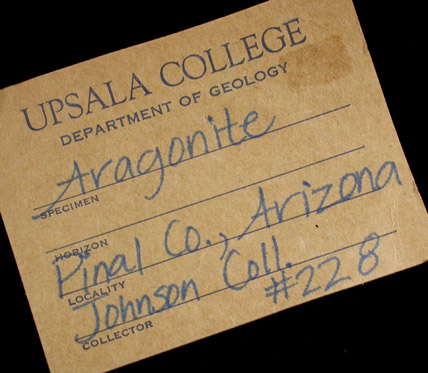 UPSALA COLLEGE
DEPARTMENT OF GEOLOGY
Aragonite
SPECIMEN
HORIZON
Pinal Co., Arizona
LOCALITY
Johnson Coll.
#228
COLLECTOR